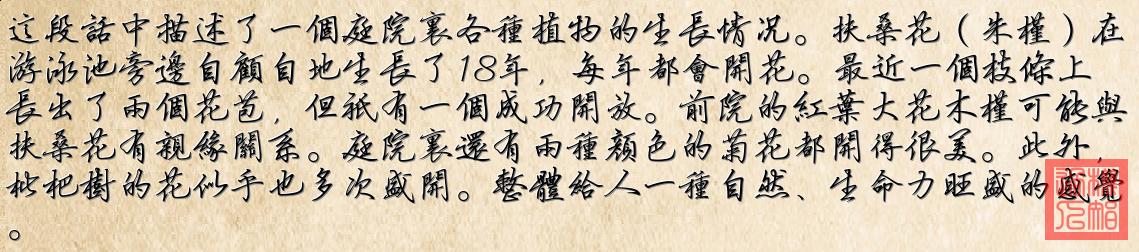 這段話中描述了一個庭院裏各種植物的生長情况。扶桑花（朱槿）在
游泳池旁邊自顧自地生長了18年，每年都會開花。最近一個枝條上
長出了兩個花苞，但祇有一個成功開放。前院的紅葉大花木槿可能與
扶桑花有親緣關系。庭院裏還有兩種顔色的菊花都開得很美。此外，
枇杷樹的花似乎也多次盛開。整體給人一種自然、生命力旺盛的感覺
。